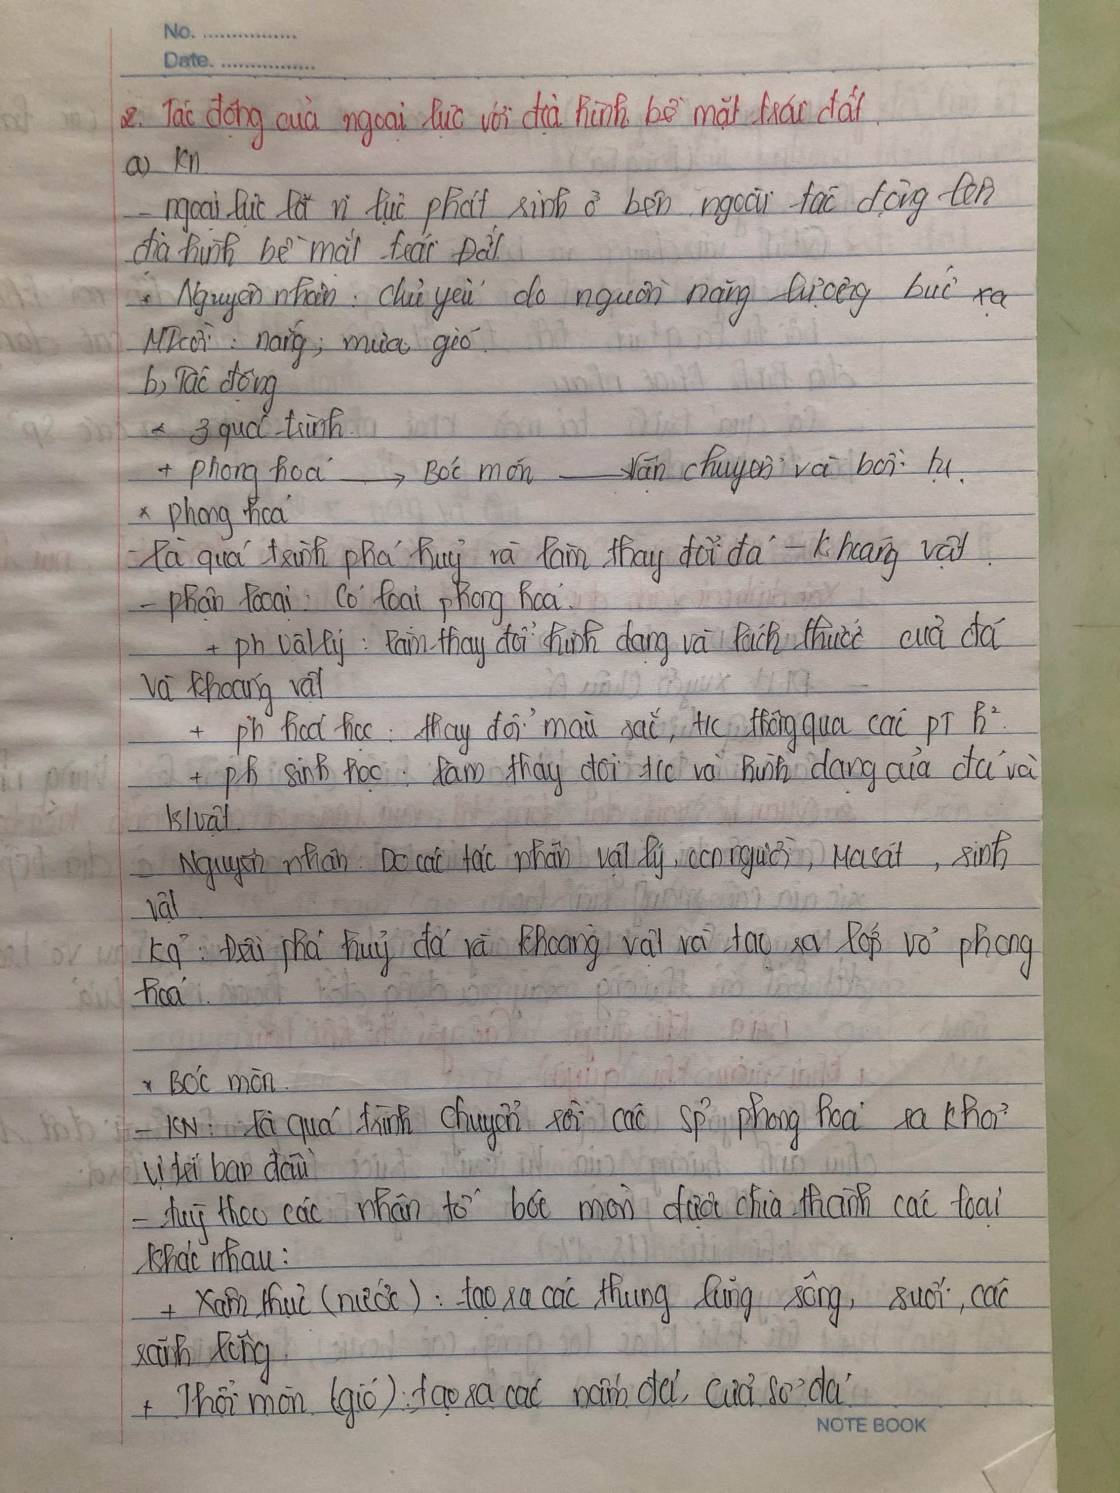 No. ................
Date. ................
2. Tác động của ngoại lực với địa hình bề mặt trái đất.
a) KN
- ngoại lực là vì lực phát sinh ở bên ngoài tác động lên
địa hình bề mặt trái Đất
• Nguyên nhân: chủ yếu do nguồn năng lượng bức xạ
MTrời: nắng, mưa, gió.
b, Tác động
* 3 quá trình
+ phong hoá → Bóc mòn → Vận chuyển và bồi tụ.
* phong hoá
- là quá trình phá huỷ và làm thay đổi đá - khoáng vật.
- phân loại: Có loại phong hoá.
+ ph vật lý: làm thay đổi hình dạng và kích thước của đá
và khoáng vật
+ ph hoá học: thay đổi màu sắc, t/c thông qua các PT h².
+ ph sinh học: làm thay đổi t/c và hình dạng của đá và
k/vật.
Nguyên nhân: Do các tác nhân vật lý, con người, Ma sát, sinh
vật
KQ: Đều phá huỷ đá và khoáng vật và tạo ra lớp vỏ phong
hoá.
* Bóc mòn.
- KN: là quá trình chuyển rời các sp phong hoá ra khỏi
vị trí ban đầu
- tuỳ theo các nhân tố bóc mòn được chia thành các loại
khác nhau:
+ Xâm thực (nước): tạo ra các thung lũng sông, suối, các
rãnh nông.
+ Thổi mòn (gió): tạo ra các nấm đá, cửa sổ đá
NOTE BOOK